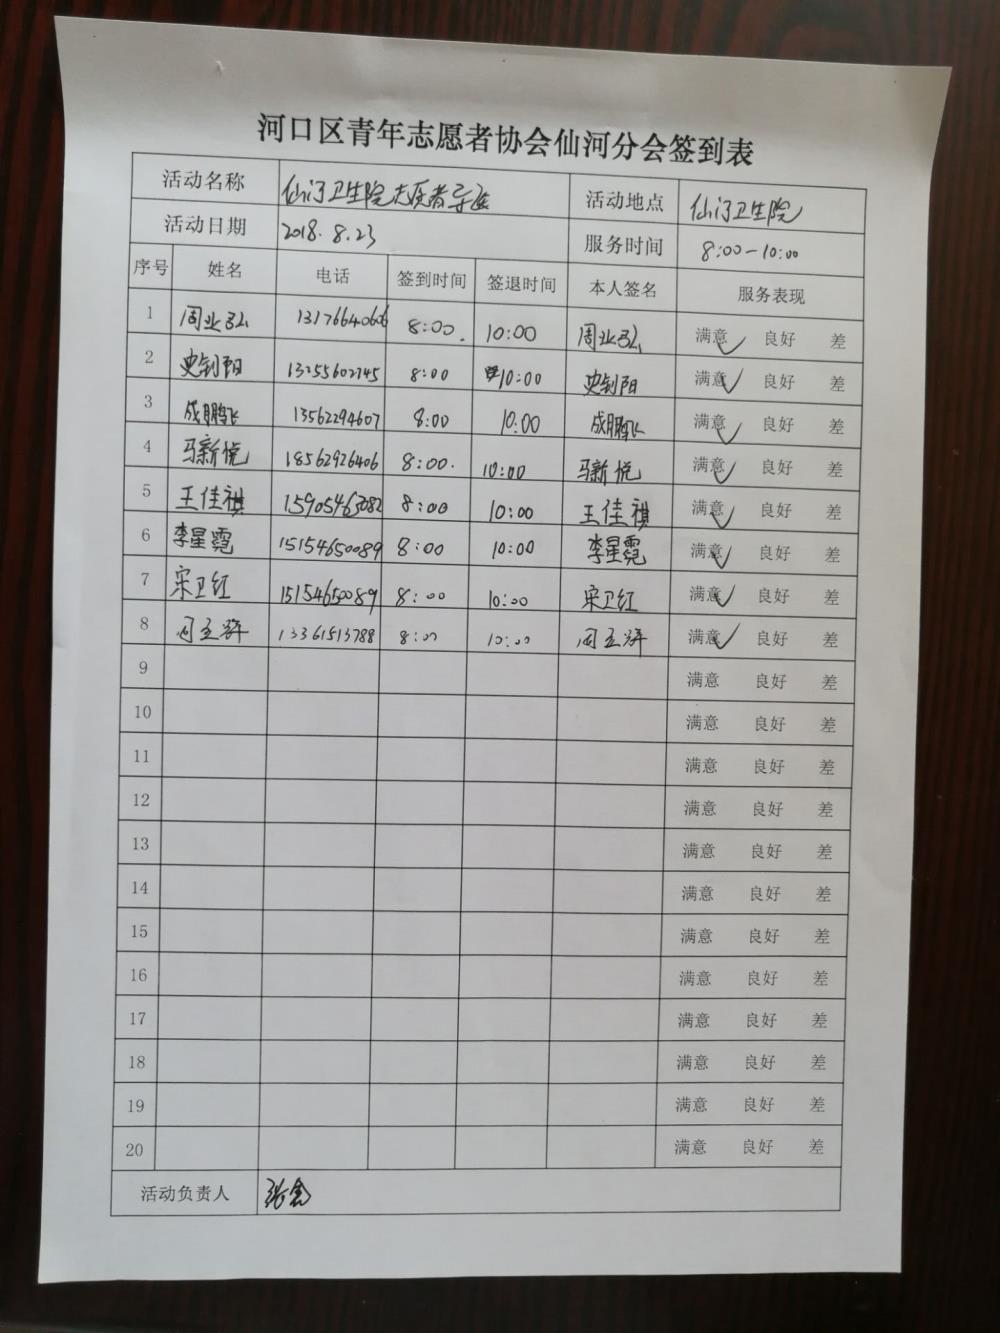 河口区青年志愿者协会仙河分会签到表
活动名称 仙河卫生院志愿者导医 活动地点 仙河卫生院
活动日期 2018.8.23 服务时间 8:00-10:00
序号 姓名 电话 签到时间 签退时间 本人签名 服务表现
1 周业弘 13176640606 8:00 10:00 周业弘 满意✓ 良好 差
2 史钊阳 13255602745 8:00 10:00 史钊阳 满意✓ 良好 差
3 成鹏飞 13562294607 8:00 10:00 成鹏飞 满意✓ 良好 差
4 马新悦 18562926406 8:00. 10:00 马新悦 满意✓ 良好 差
5 王佳祺 15905463082 8:00 10:00 王佳祺 满意✓ 良好 差
6 李星霓 15154650089 8:00 10:00 李星霓 满意✓ 良好 差
7 宋卫红 15154650089 8:00 10:00 宋卫红 满意✓ 良好 差
8 13361513788 8:00 10:00 满意✓ 良好 差
9 满意 良好 差
10 满意 良好 差
11 满意 良好 差
12 满意 良好 差
13 满意 良好 差
14 满意 良好 差
15 满意 良好 差
16 满意 良好 差
17 满意 良好 差
18 满意 良好 差
19 满意 良好 差
20 满意 良好 差
活动负责人 张